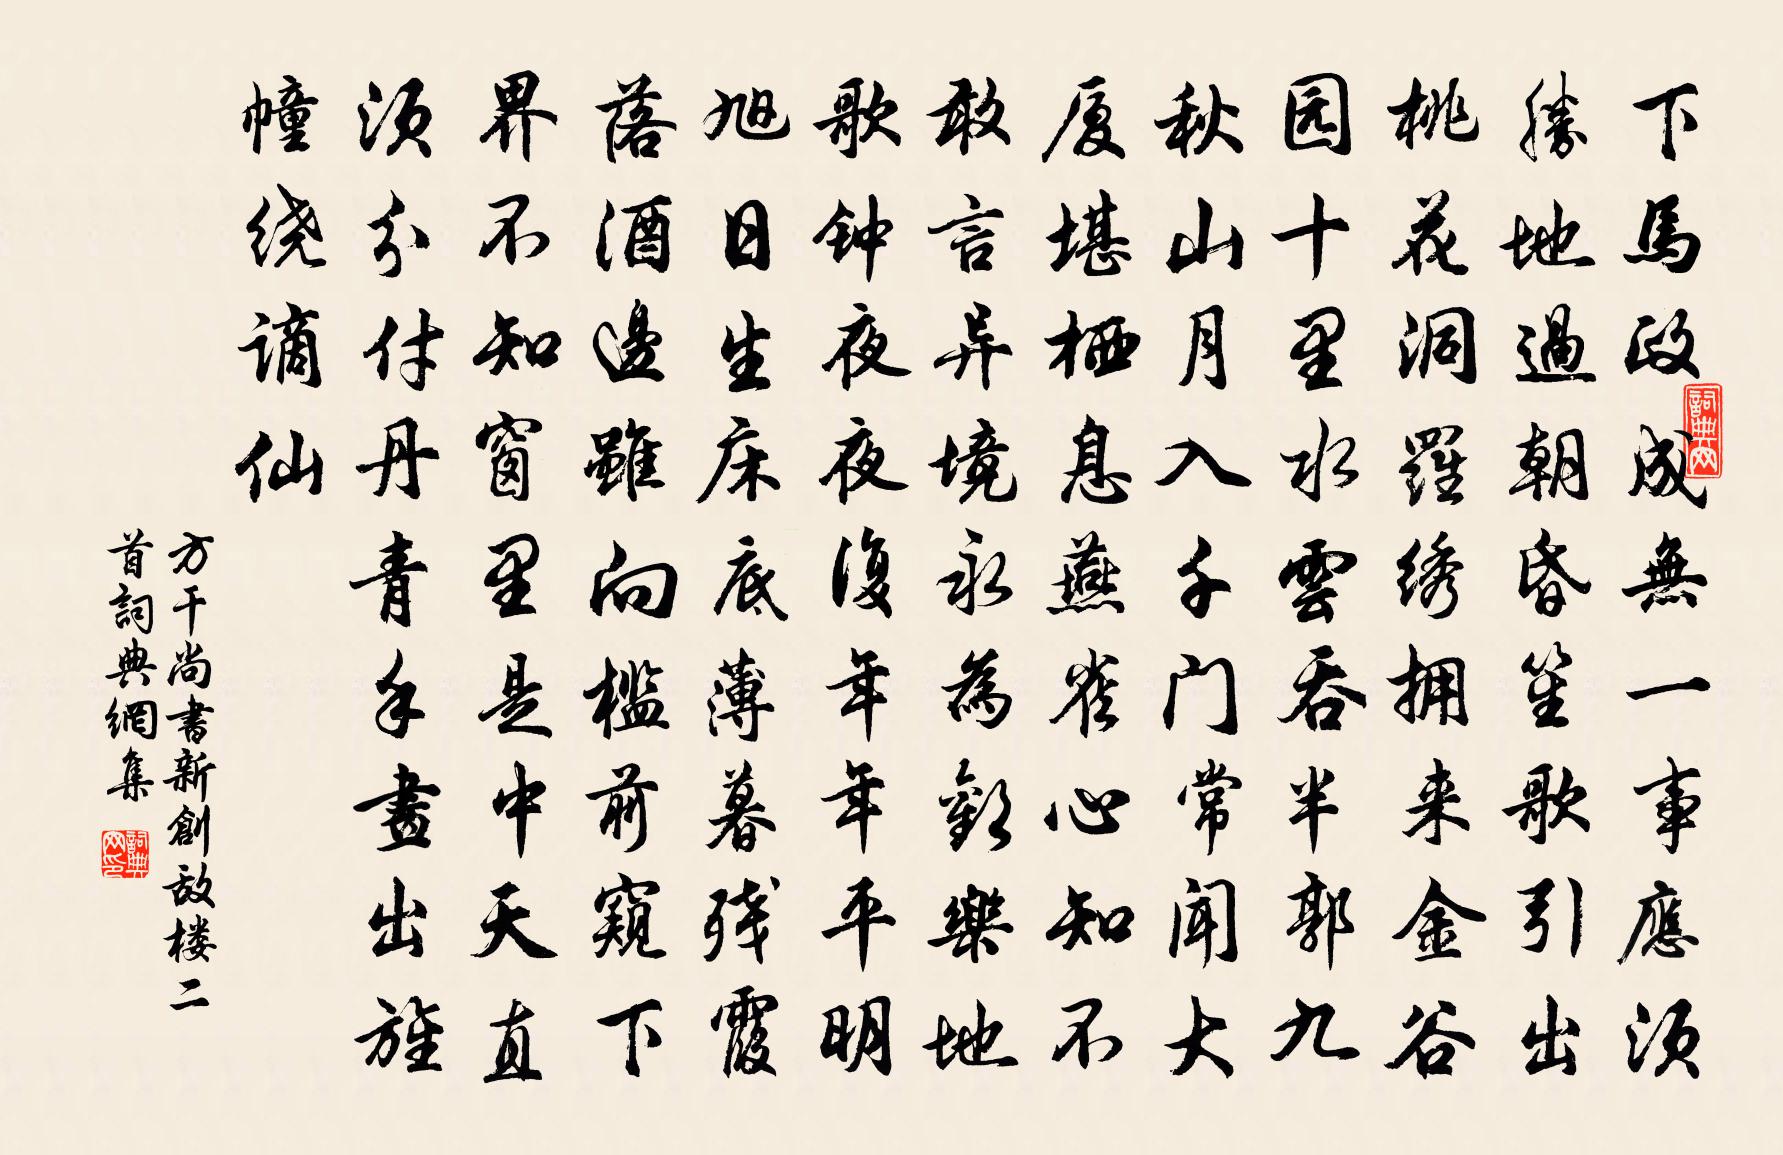 下馬政成無一事應须
勝地過朝昏笙歌引出
桃花洞羅绣拥来金谷
园十里水雲吞半郭九
秋山月入千门常闻大
厦堪栖息燕雀心知不
敢言异境永為歡樂地
歌钟夜夜復年年平明
旭日生床底薄暮残霞
落酒邊雖向檻前窺下
界不知窗里是中天直
须分付丹青手畫出旌
幢绕谪仙
方干尚書新創敌楼二
首詞典網集
詞典网
詞典网印